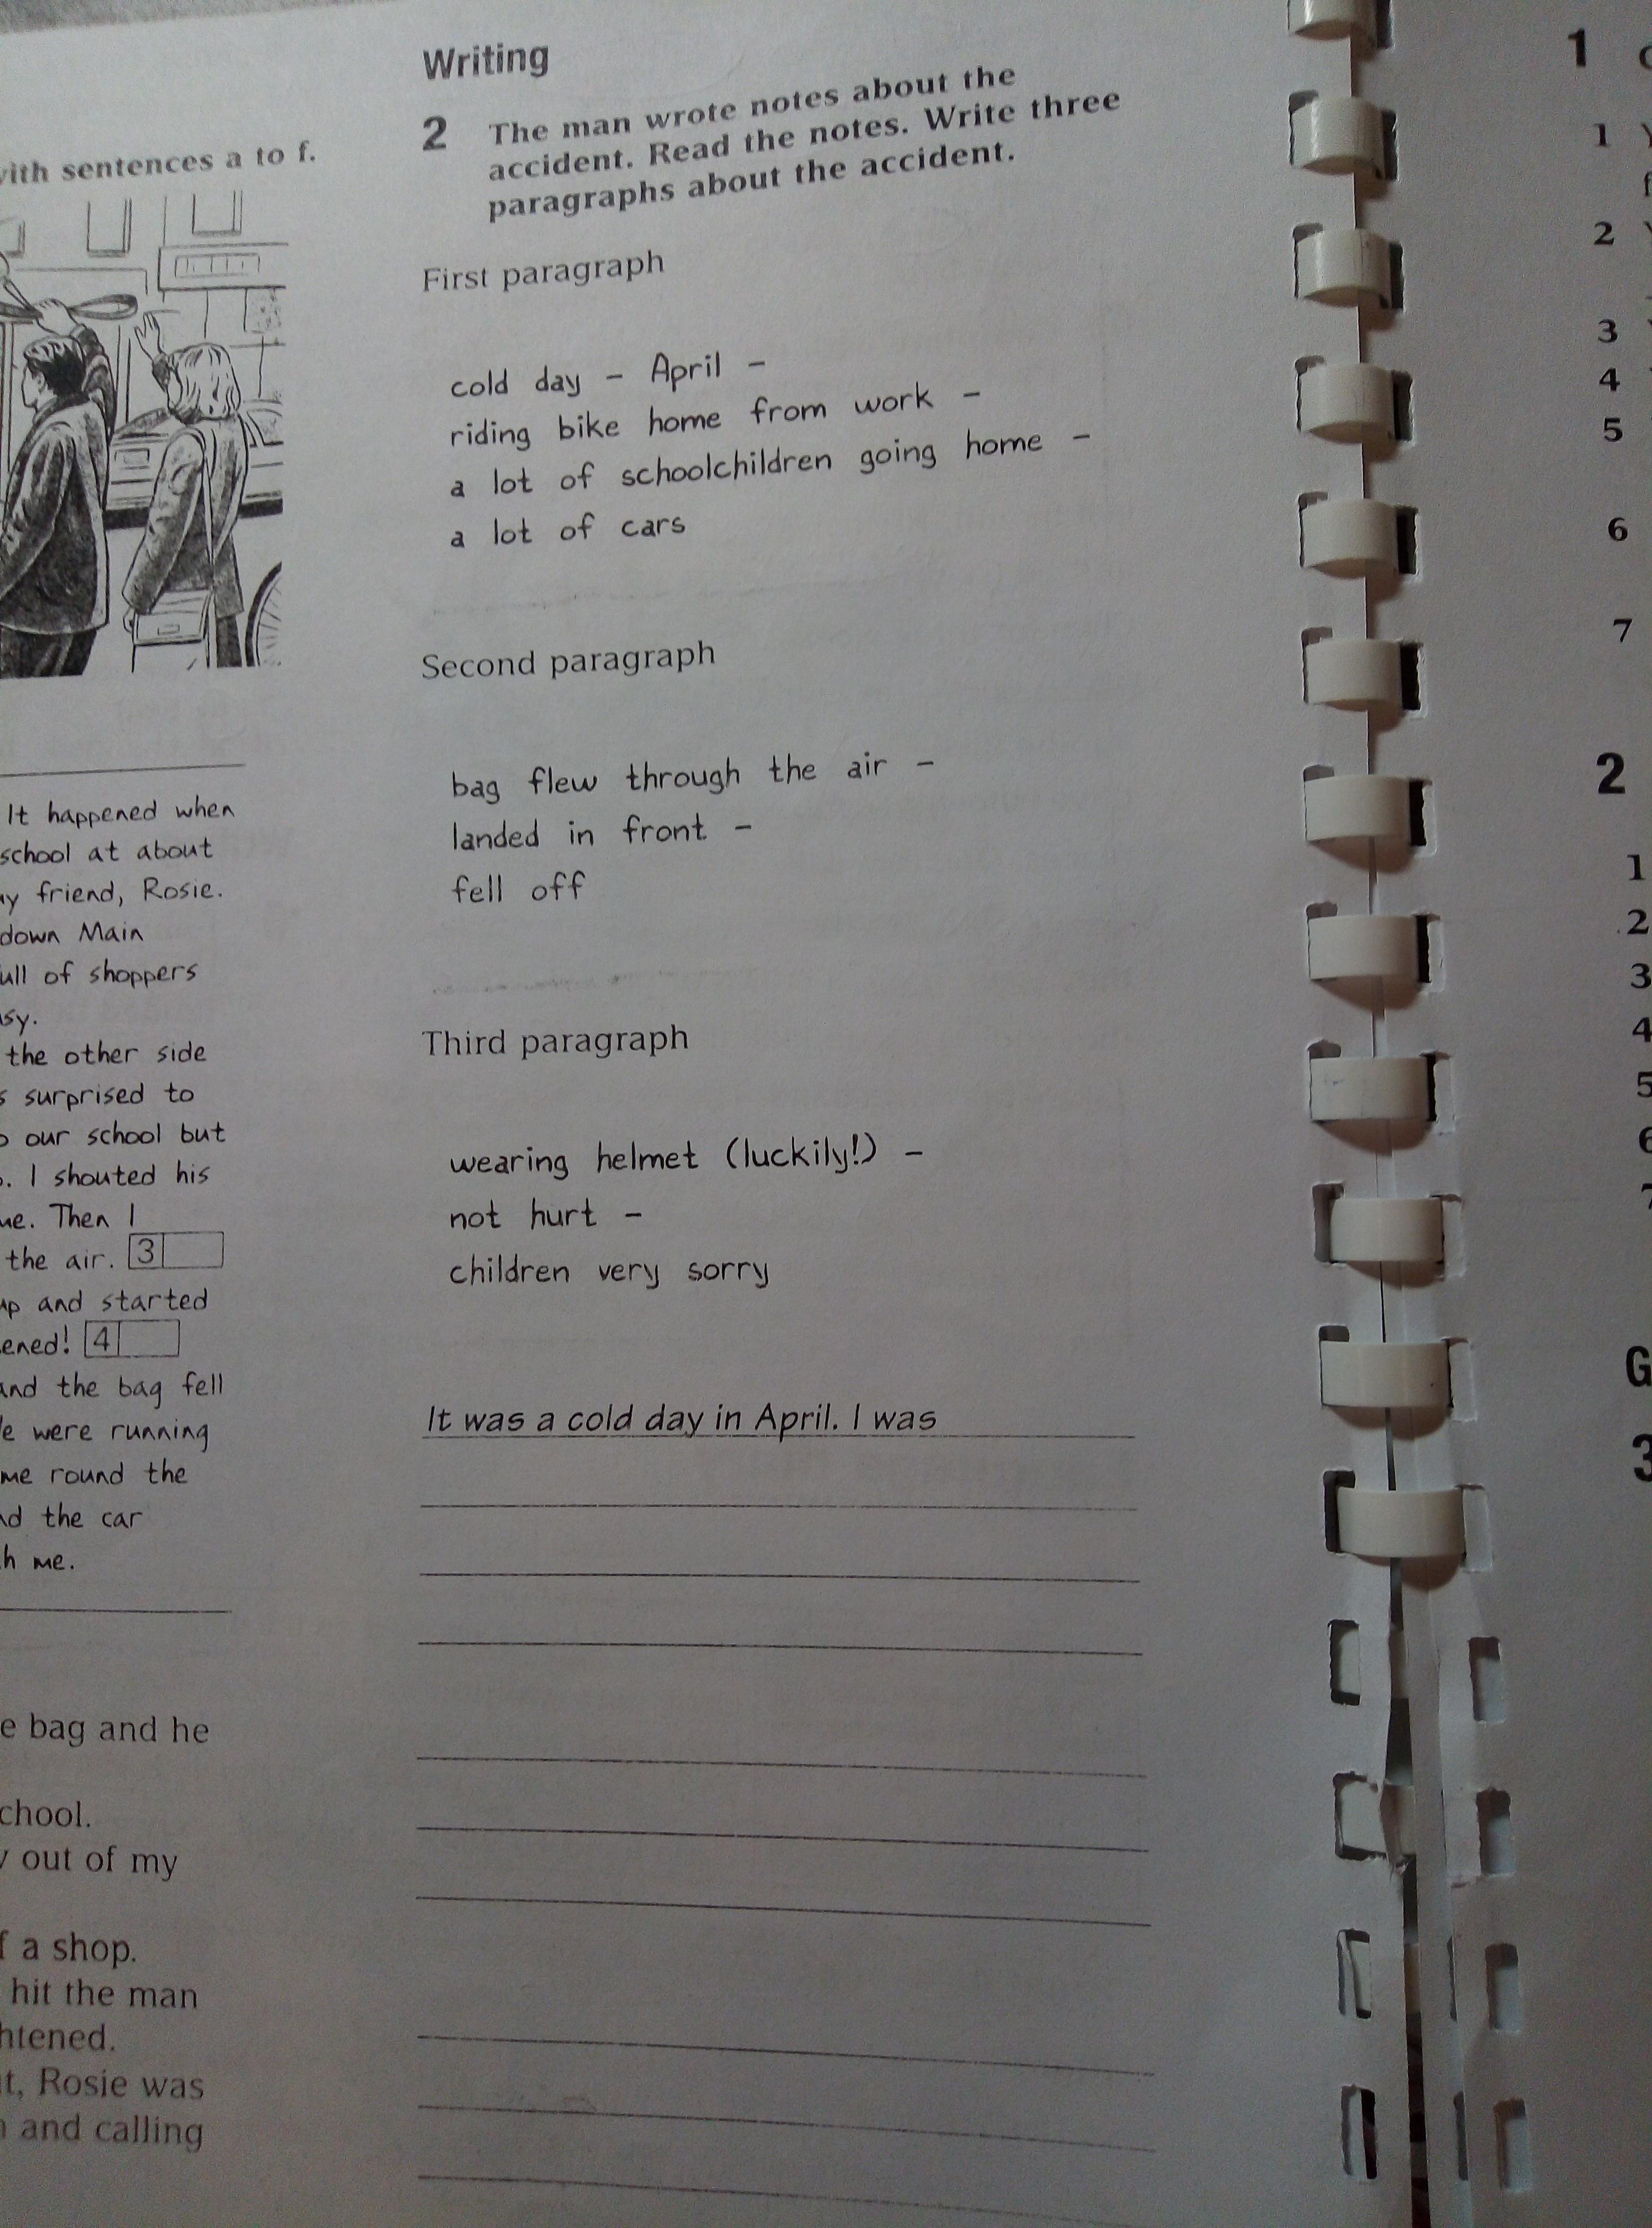 with sentences a to f.
It happened when
school at about
friend, Rosie.
down Main
of shoppers
the other side
surprised to
our school but
I shouted his
Then I
the air. 3
and started
4
and the bag fell
were running
round the
the car
me.
bag and he
out of my
a shop.
hit the man
Rosie was
and calling
Writing
2 The man wrote notes about the
accident. Read the notes. Write three
paragraphs about the accident.
First paragraph
cold day – April –
riding bike home from work –
a lot of schoolchildren going home –
a lot of cars
Second paragraph
bag flew through the air –
landed in front –
fell off
Third paragraph
wearing helmet (luckily!) –
not hurt –
children very sorry
It was a cold day in April. I was
1
1
2
3
4
5
6
7
2
1
2
3
4
5
6
7
G
3